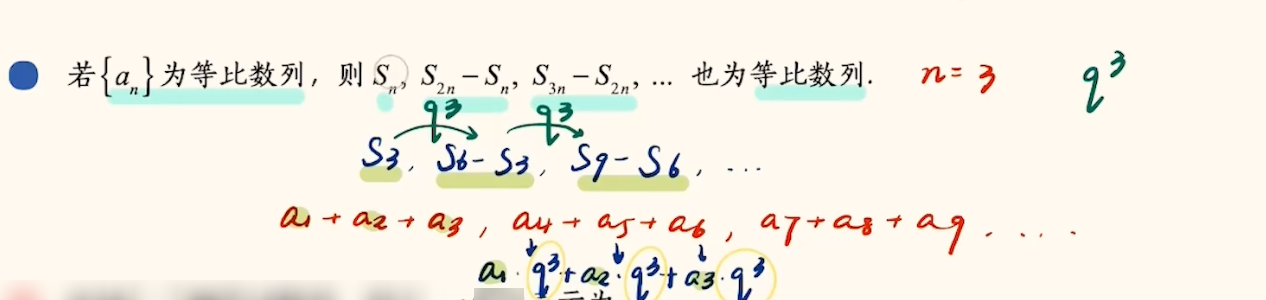 若{aₙ}为等比数列，则 Sₙ, S₂ₙ − Sₙ, S₃ₙ − S₂ₙ, ... 也为等比数列. n = 3 q³
q³ q³
S₃, S₆ - S₃, S₉ - S₆, ...
a₁ + a₂ + a₃, a₄ + a₅ + a₆, a₇ + a₈ + a₉ ....
a₁·q³ + a₂·q³ + a₃·q³